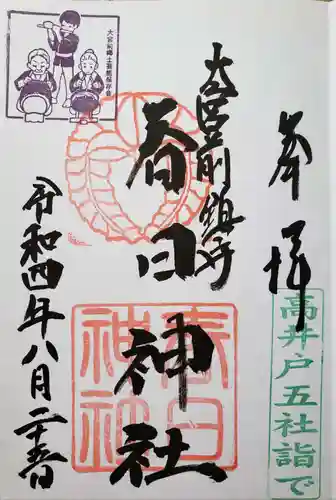 奉拝
高井戸五社詣で
大宮前鎮守
春日神社
春日神社
令和四年八月二十五日
大宮前郷土芸能保存会